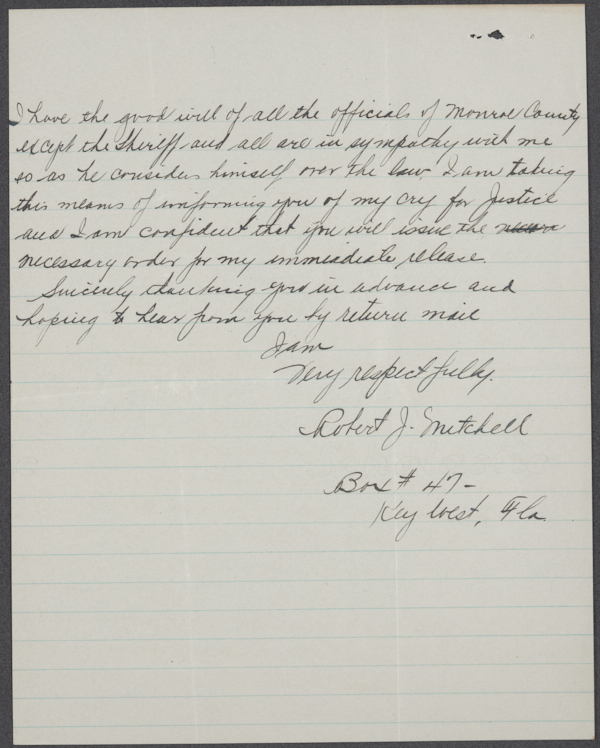 I have the good will of all the officials of Monroe County
except the Sheriff and all are in sympathy with me
so as he considers himself over the law. I am taking
this means of informing you of my cry for Justice
and I am confident that you will issue the
necessary order for my immediate release.
Sincerely thanking you in advance and
hoping to hear from you by return mail
I am
Very respectfully.
Robert J. Mitchell
Box # 47-
Key West, Fla